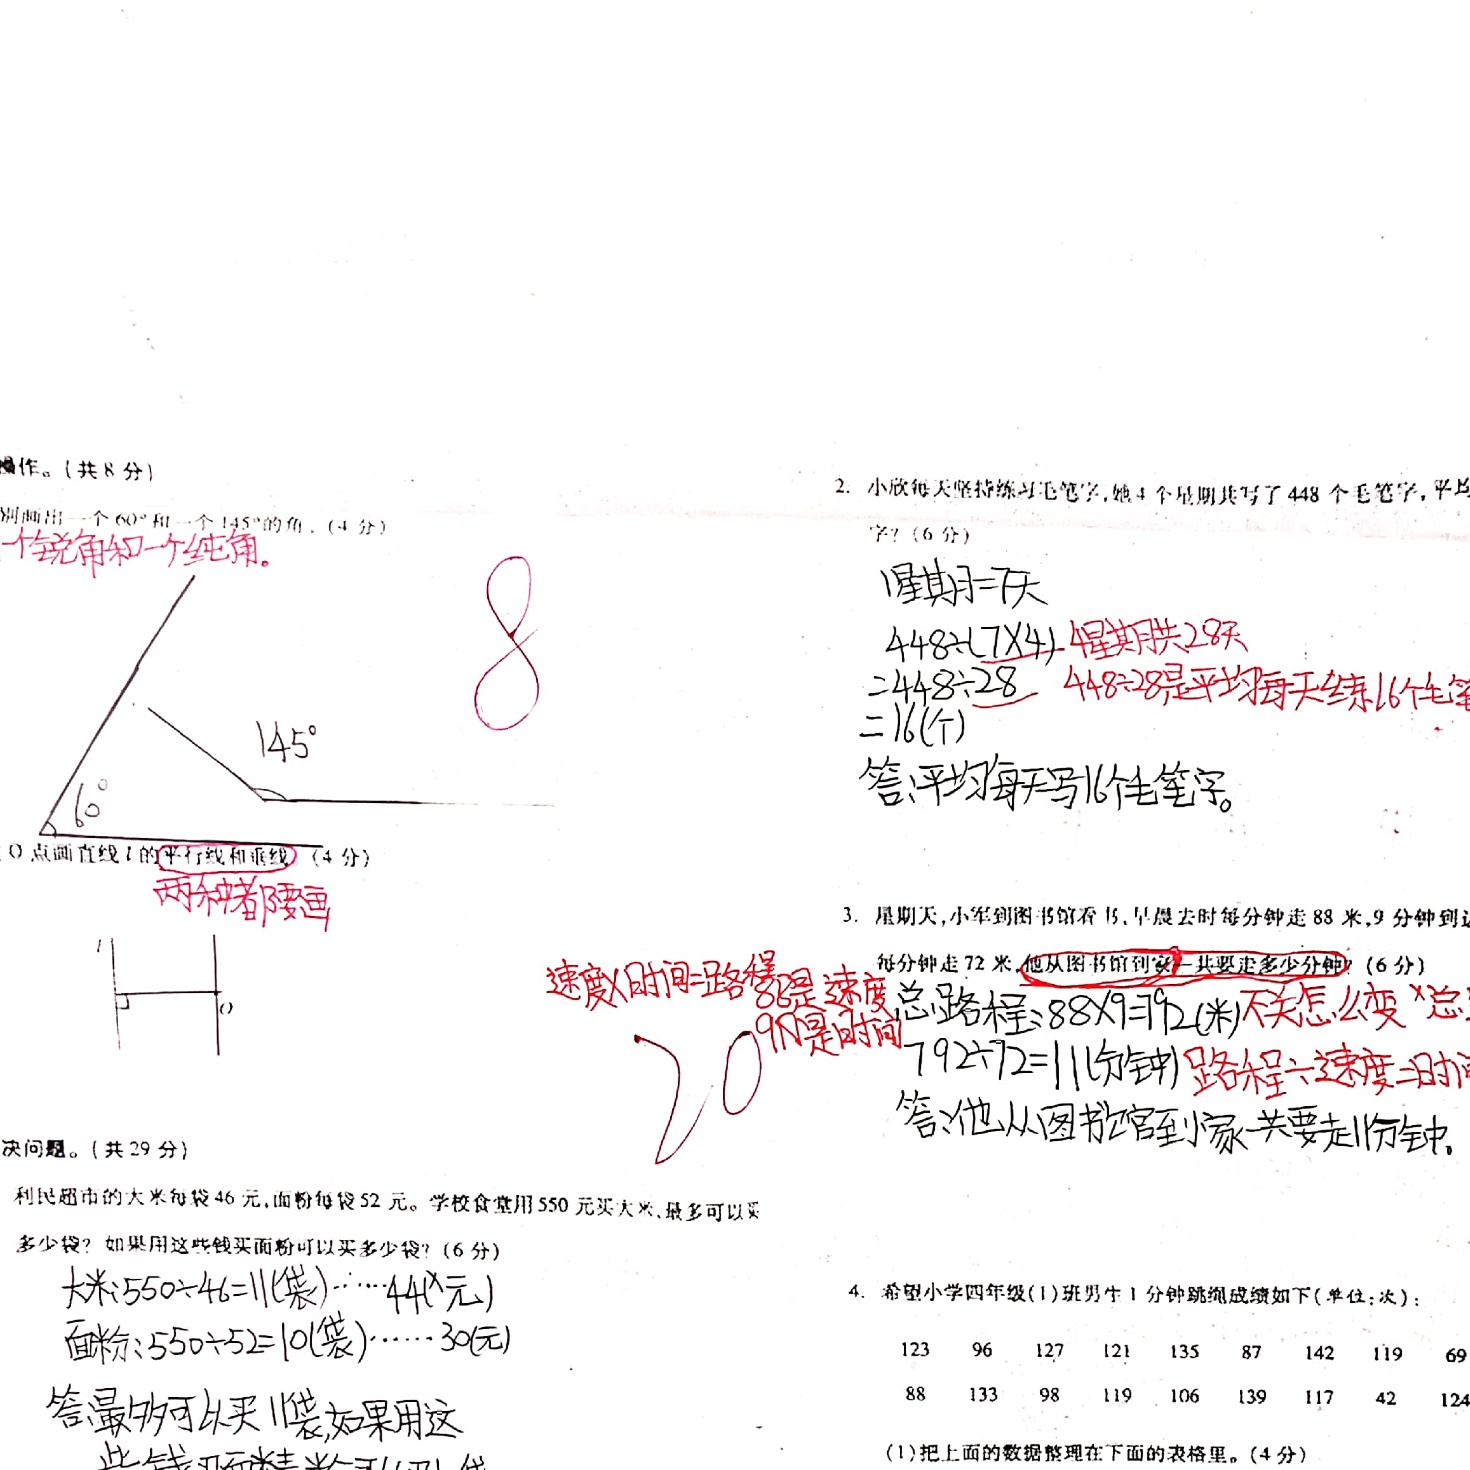 操作。(共 8 分)
别画出一个 60° 和一个 145° 的角。(4 分)
一个锐角和一个钝角。
8
145°
60°
O 点画直线 l 的平行线和垂线 (4 分)
两种都要画
l
O
速度×时间=路程
88是速度
9分是时间
20
决问题。(共 29 分)
利民超市的大米每袋 46 元,面粉每袋 52 元。学校食堂用 550 元买大米,最多可以买
多少袋? 如果用这些钱买面粉可以买多少袋? (6 分)
大米:550÷46=11(袋)······44(元)
面粉:550÷52=10(袋)······30(元)
答:最多可以买11袋,如果用这
2. 小欣每天坚持练习毛笔字,她 4 个星期共写了 448 个毛笔字,平均
字? (6 分)
1星期=7天
448÷(7×4) 4星期共28天
=448÷28 448÷28是平均每天练16个毛笔
=16(个)
答:平均每天写16个毛笔字。
3. 星期天,小军到图书馆看书,早晨去时每分钟走 88 米,9 分钟到达
每分钟走 72 米,他从图书馆到家一共要走多少分钟? (6 分)
总路程:88×9=792(米) 不关怎么变 总
792÷72=11(分钟) 路程÷速度=时间
答:他从图书馆到家一共要走11分钟。
4. 希望小学四年级(1)班男生 1 分钟跳绳成绩如下(单位:次):
123 96 127 121 135 87 142 119 69
88 133 98 119 106 139 117 42 124
(1)把上面的数据整理在下面的表格里。(4 分)